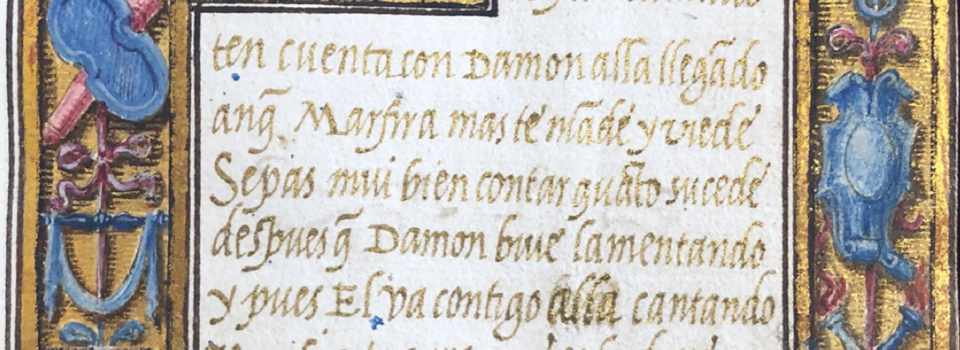 ten cuenta con Damon alla llegãdo
anq̃ Marfira mas te mãde y viede
Sepas mui bien contar quãto sucede
despues q̃ Damon biue lamentando
y pues El va contigo alla cantando